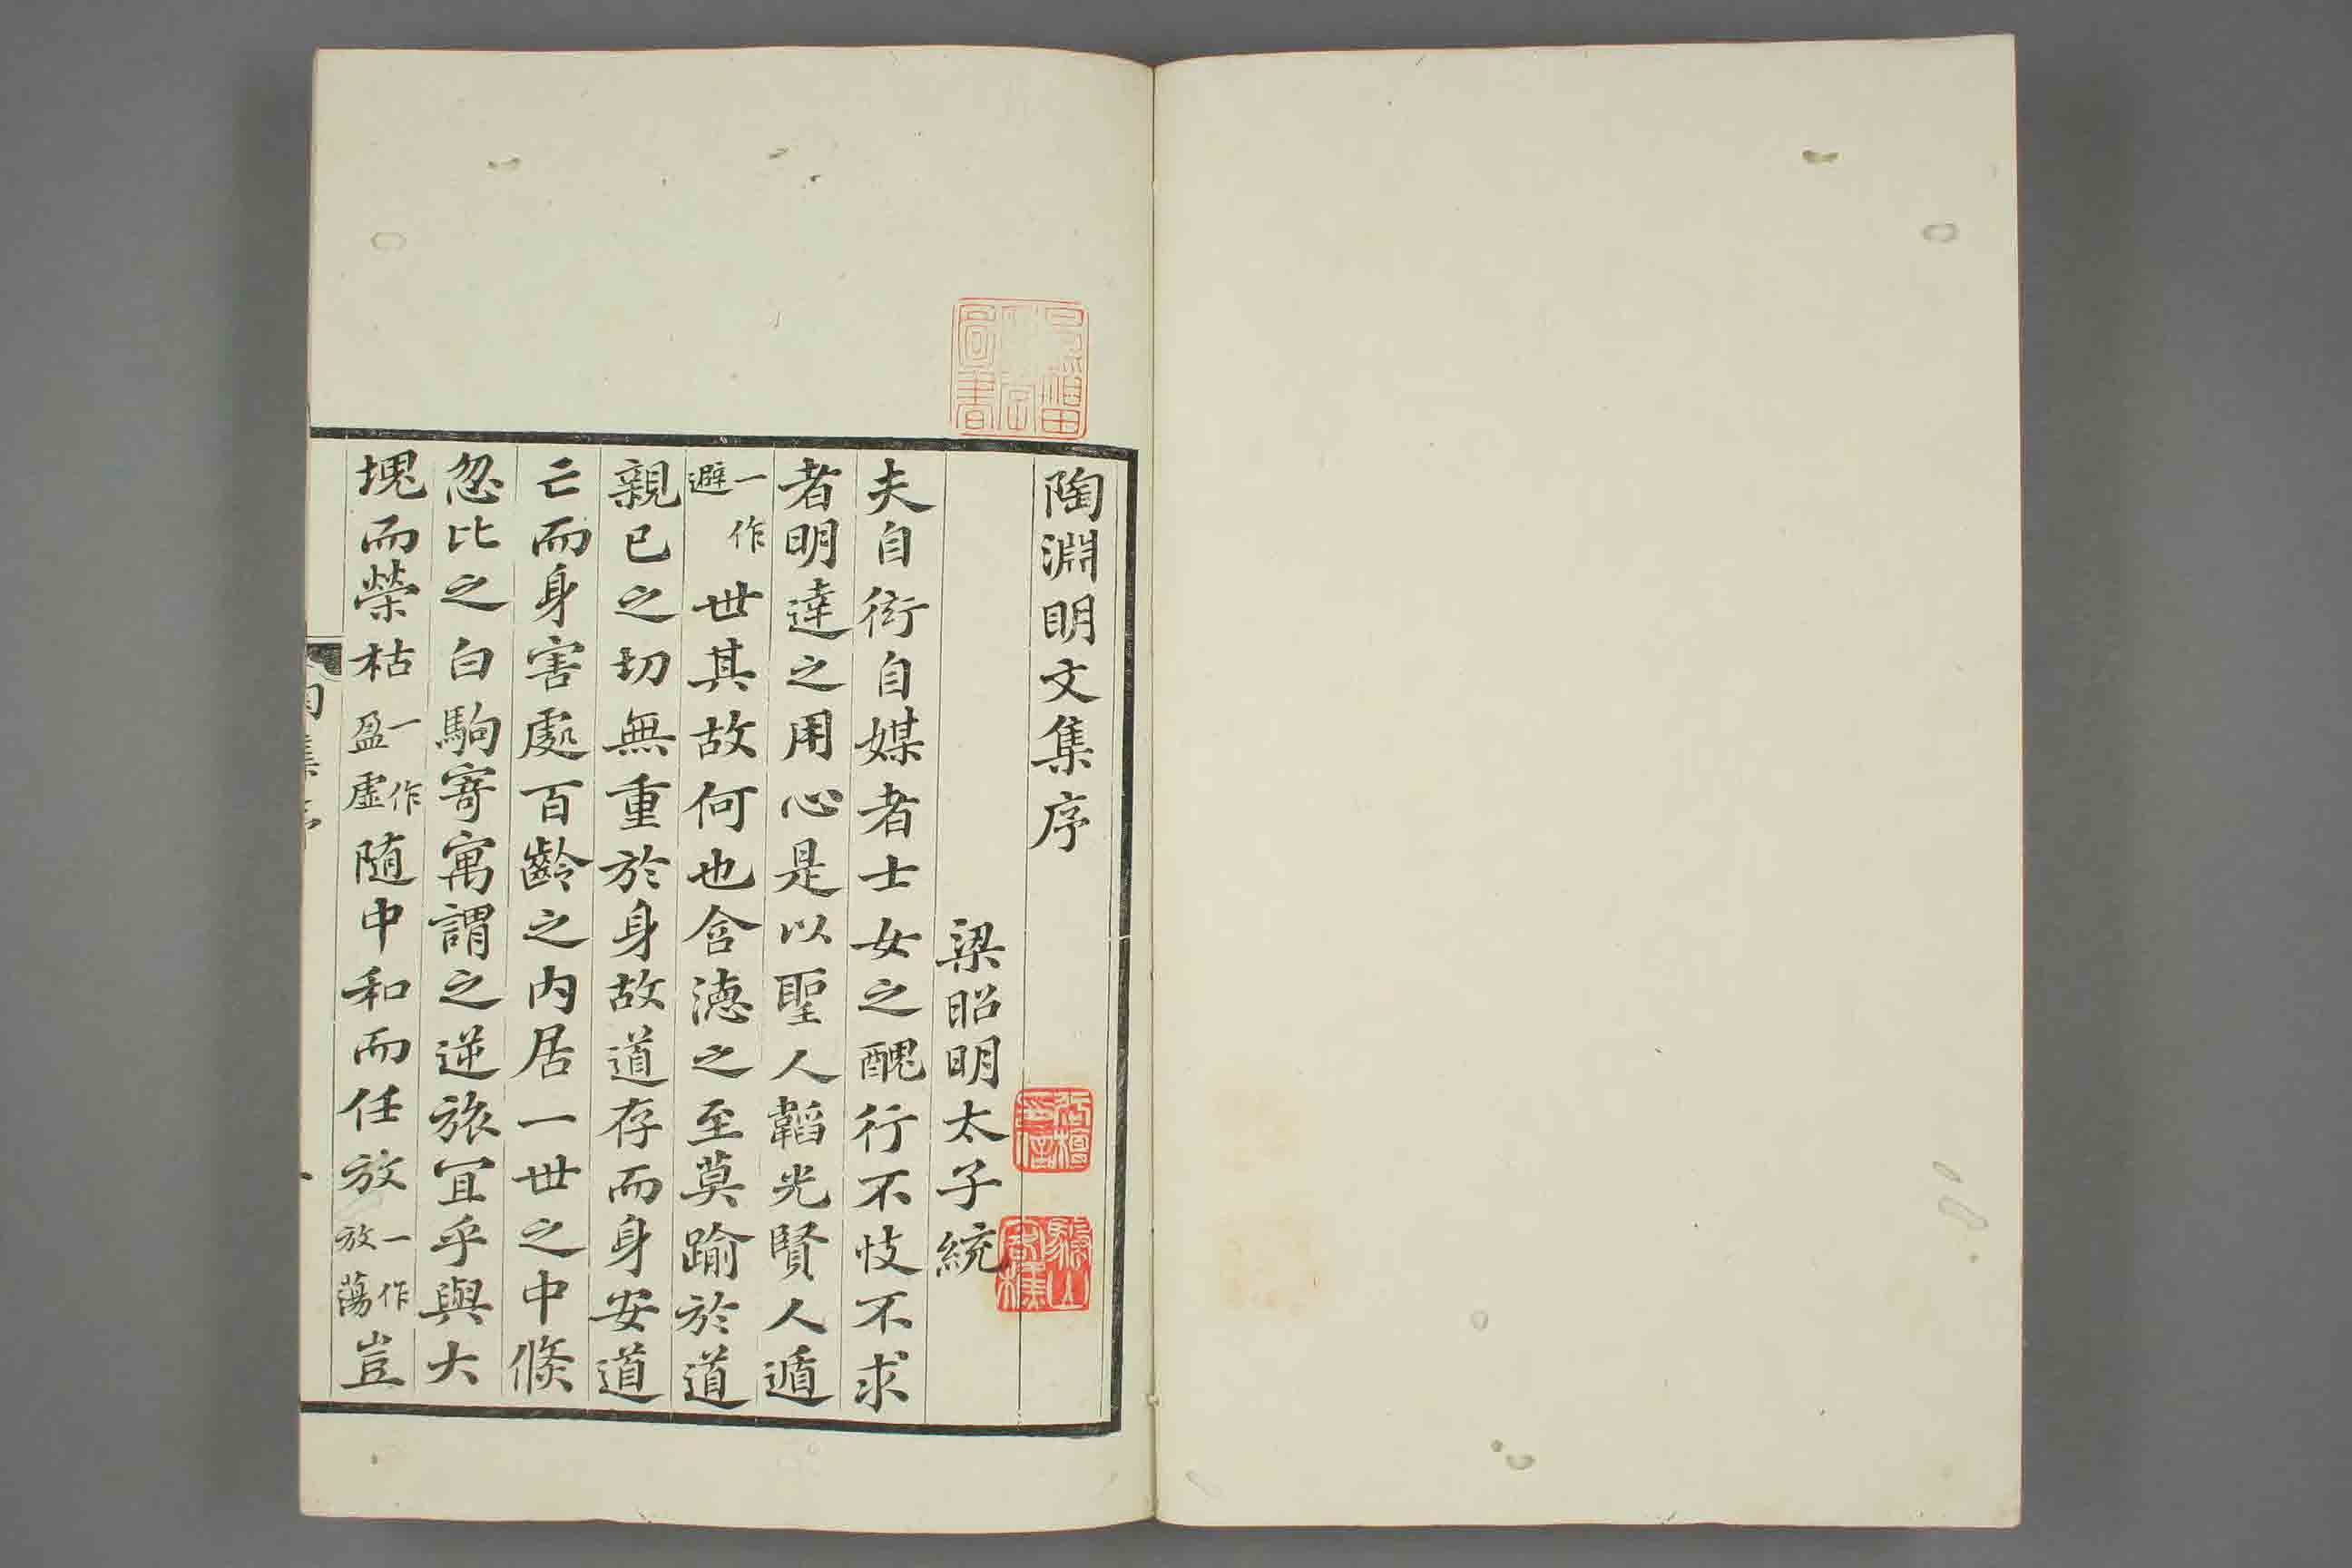 陶淵明文集序
梁昭明太子統
夫自衒自媒者士女之醜行不忮不求
者明達之用心是以聖人韜光賢人遁
一作避世其故何也含德之至莫踰於道
親已之切無重於身故道存而身安道
亡而身害處百齡之內居一世之中倐
忽比之白駒寄寓謂之逆旅冝乎與大
塊而榮枯一作盈虛随中和而任放一作放蕩豈